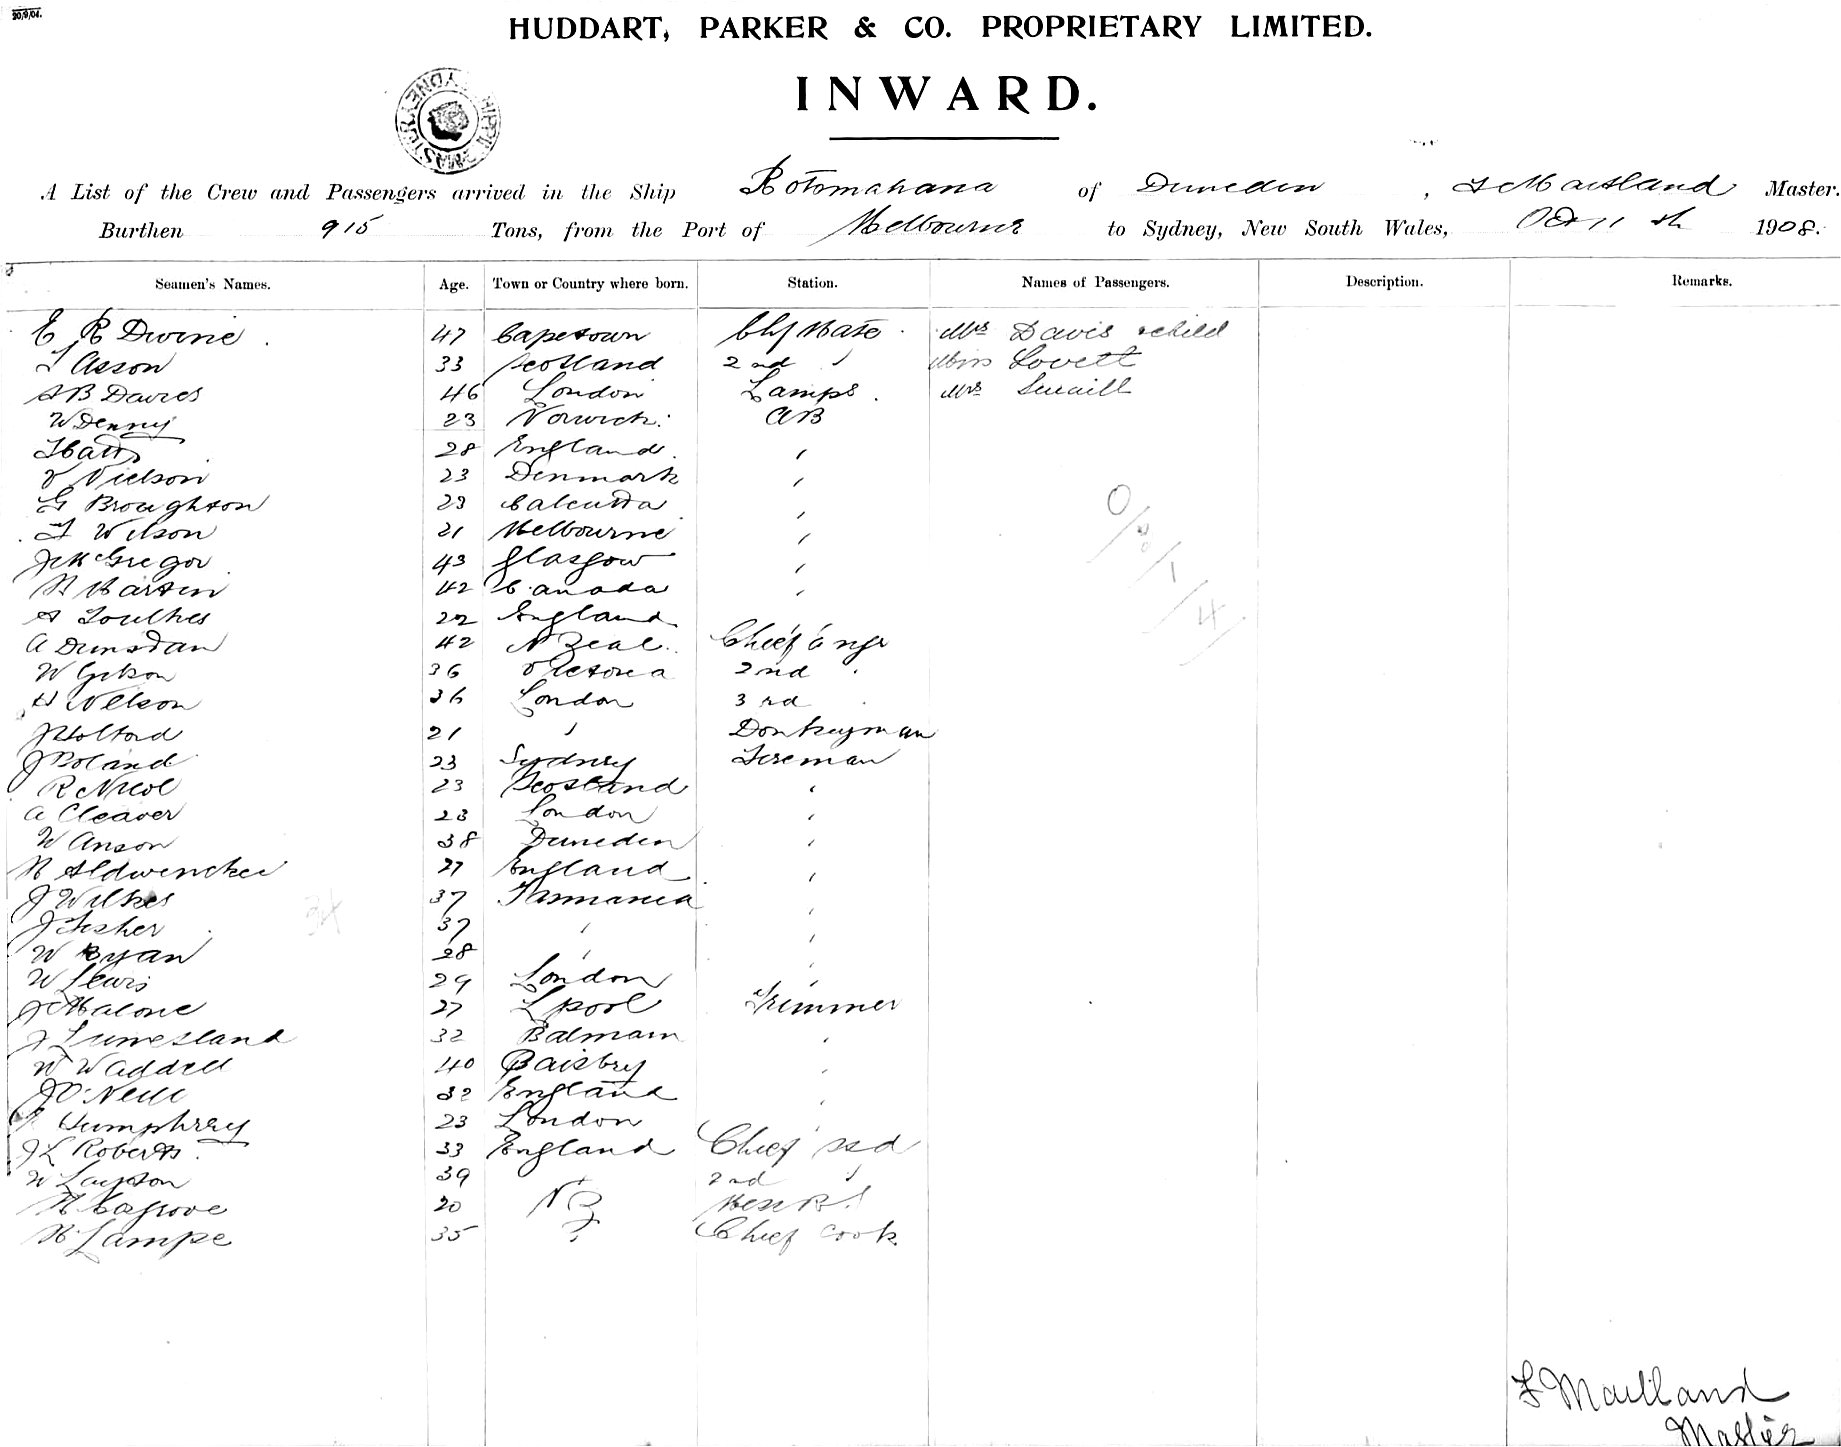 20/9/04.
HUDDART, PARKER & CO. PROPRIETARY LIMITED.
INWARD.
A List of the Crew and Passengers arrived in the Ship Rotomahana of Dunedin, F Maitland Master.
Burthen 915 Tons, from the Port of Melbourne to Sydney, New South Wales, Oct 11th 1908.
Seamen's Names. Age. Town or Country where born. Station. Names of Passengers. Description. Remarks.
E R Devine 47 Capetown Chf Mate Mrs Davis & child
Asson 33 Scotland 2nd " Miss Lovett
A B Davies 46 London Lamps Mrs Smaill
W Denny 23 Norwich AB
28 England "
Nielson 23 Denmark "
G Broughton 23 Calcutta "
F Wilson 21 Melbourne "
J McGregor 43 Glasgow "
H Martin 42 Canada "
A Foulkes 22 England
A Dunstan 42 N Zeal Chief Engr
W Gibson 36 Victoria 2nd "
H Wilson 36 London 3rd
J Holford 21 " Donkeyman
J Boland 23 Sydney Fireman
R Nicol 23 Scotland "
A Cleaver 23 London "
W Anson 38 Dunedin "
H Aldwinckle 27 England "
J Wilkes 37 Tasmania "
J Fisher 37 " "
W Ryan 28 " "
W Lewis 29 London
J Malone 27 Lpool Trimmer
J 32 Balmain "
W Waddell 40 "
J O'Neill 32 England "
Humphrey 23 London
J L Roberts 33 England Chief ssd
W 39 2nd "
H Cosgrove 20 NZ
H Lampe 35 " Chief Cook
F Maitland
Master